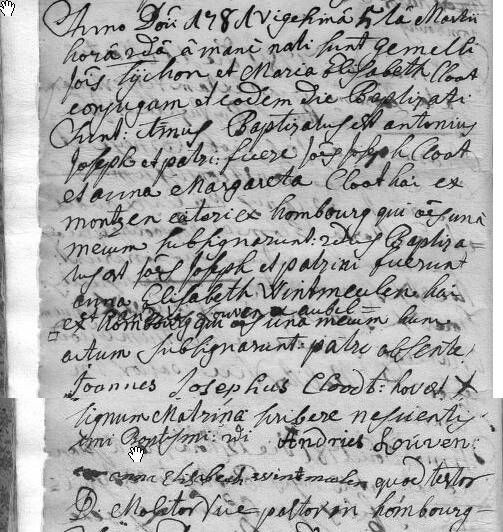 Anno Dni 1781 vigesima 5ta Martii
hora 2da a mane nati sunt gemelli
Jois Tychon et Maria Elisabeth Cloot
conjugam et eodem die Baptizati
sunt: 1mus Baptizatus est antonius
Joseph et patri: fuere Jois Joseph Cloot
et anna Margareta Cloot hai ex
montzen cateri ex hombourg qui oes una
mecum subsignarunt: 2dus Baptiza=
tus est Jois Joseph et patrini fuerunt
anna Elisabeth Wintmeulen hai
et andries Louven ex aubel
ex hombourg qui oes una mecum hunc
actum subsignarunt: patre absente
Joannes Josephus Cloodt: hovet X
signum Matrina scribere nescientis
1mi Bapt 2di Andries Louven:
anna Elisabeth wintmeulen quod testor
D: Molitor vice pastor in hombourg